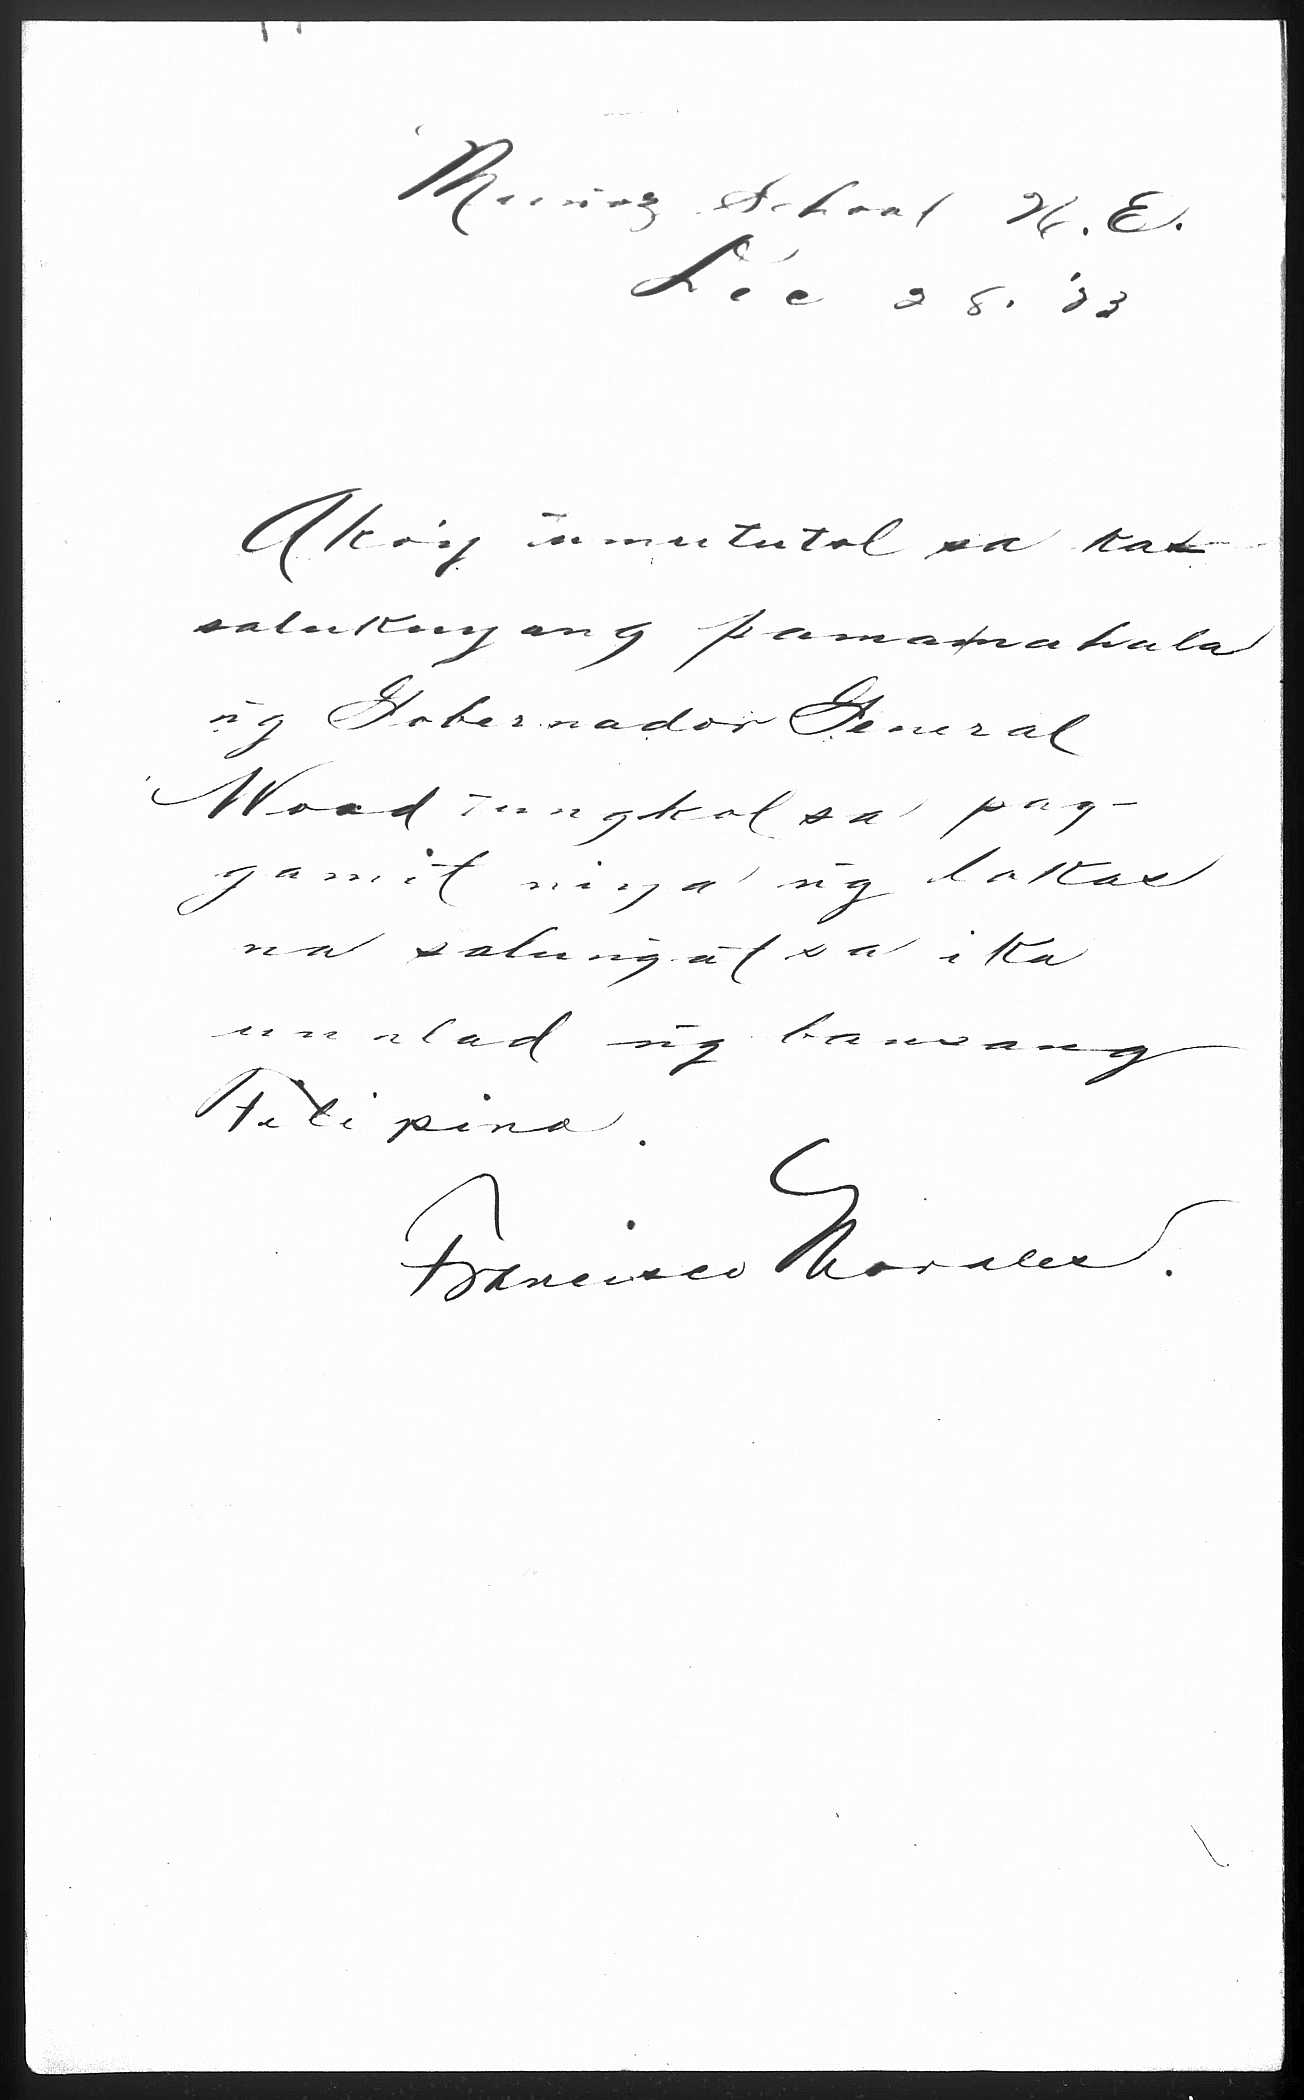 Muñoz School N.E.
Dec 28. '23
Ako'y tumututol sa kas-
salukuyang pamamahala
ng̃ Gobernador General
Wood tungkol sa pag-
gamit niya ng̃ lakas
na salung̃at sa ika
uunlad ng̃ bansang
Filipino.
Francisco Morales.